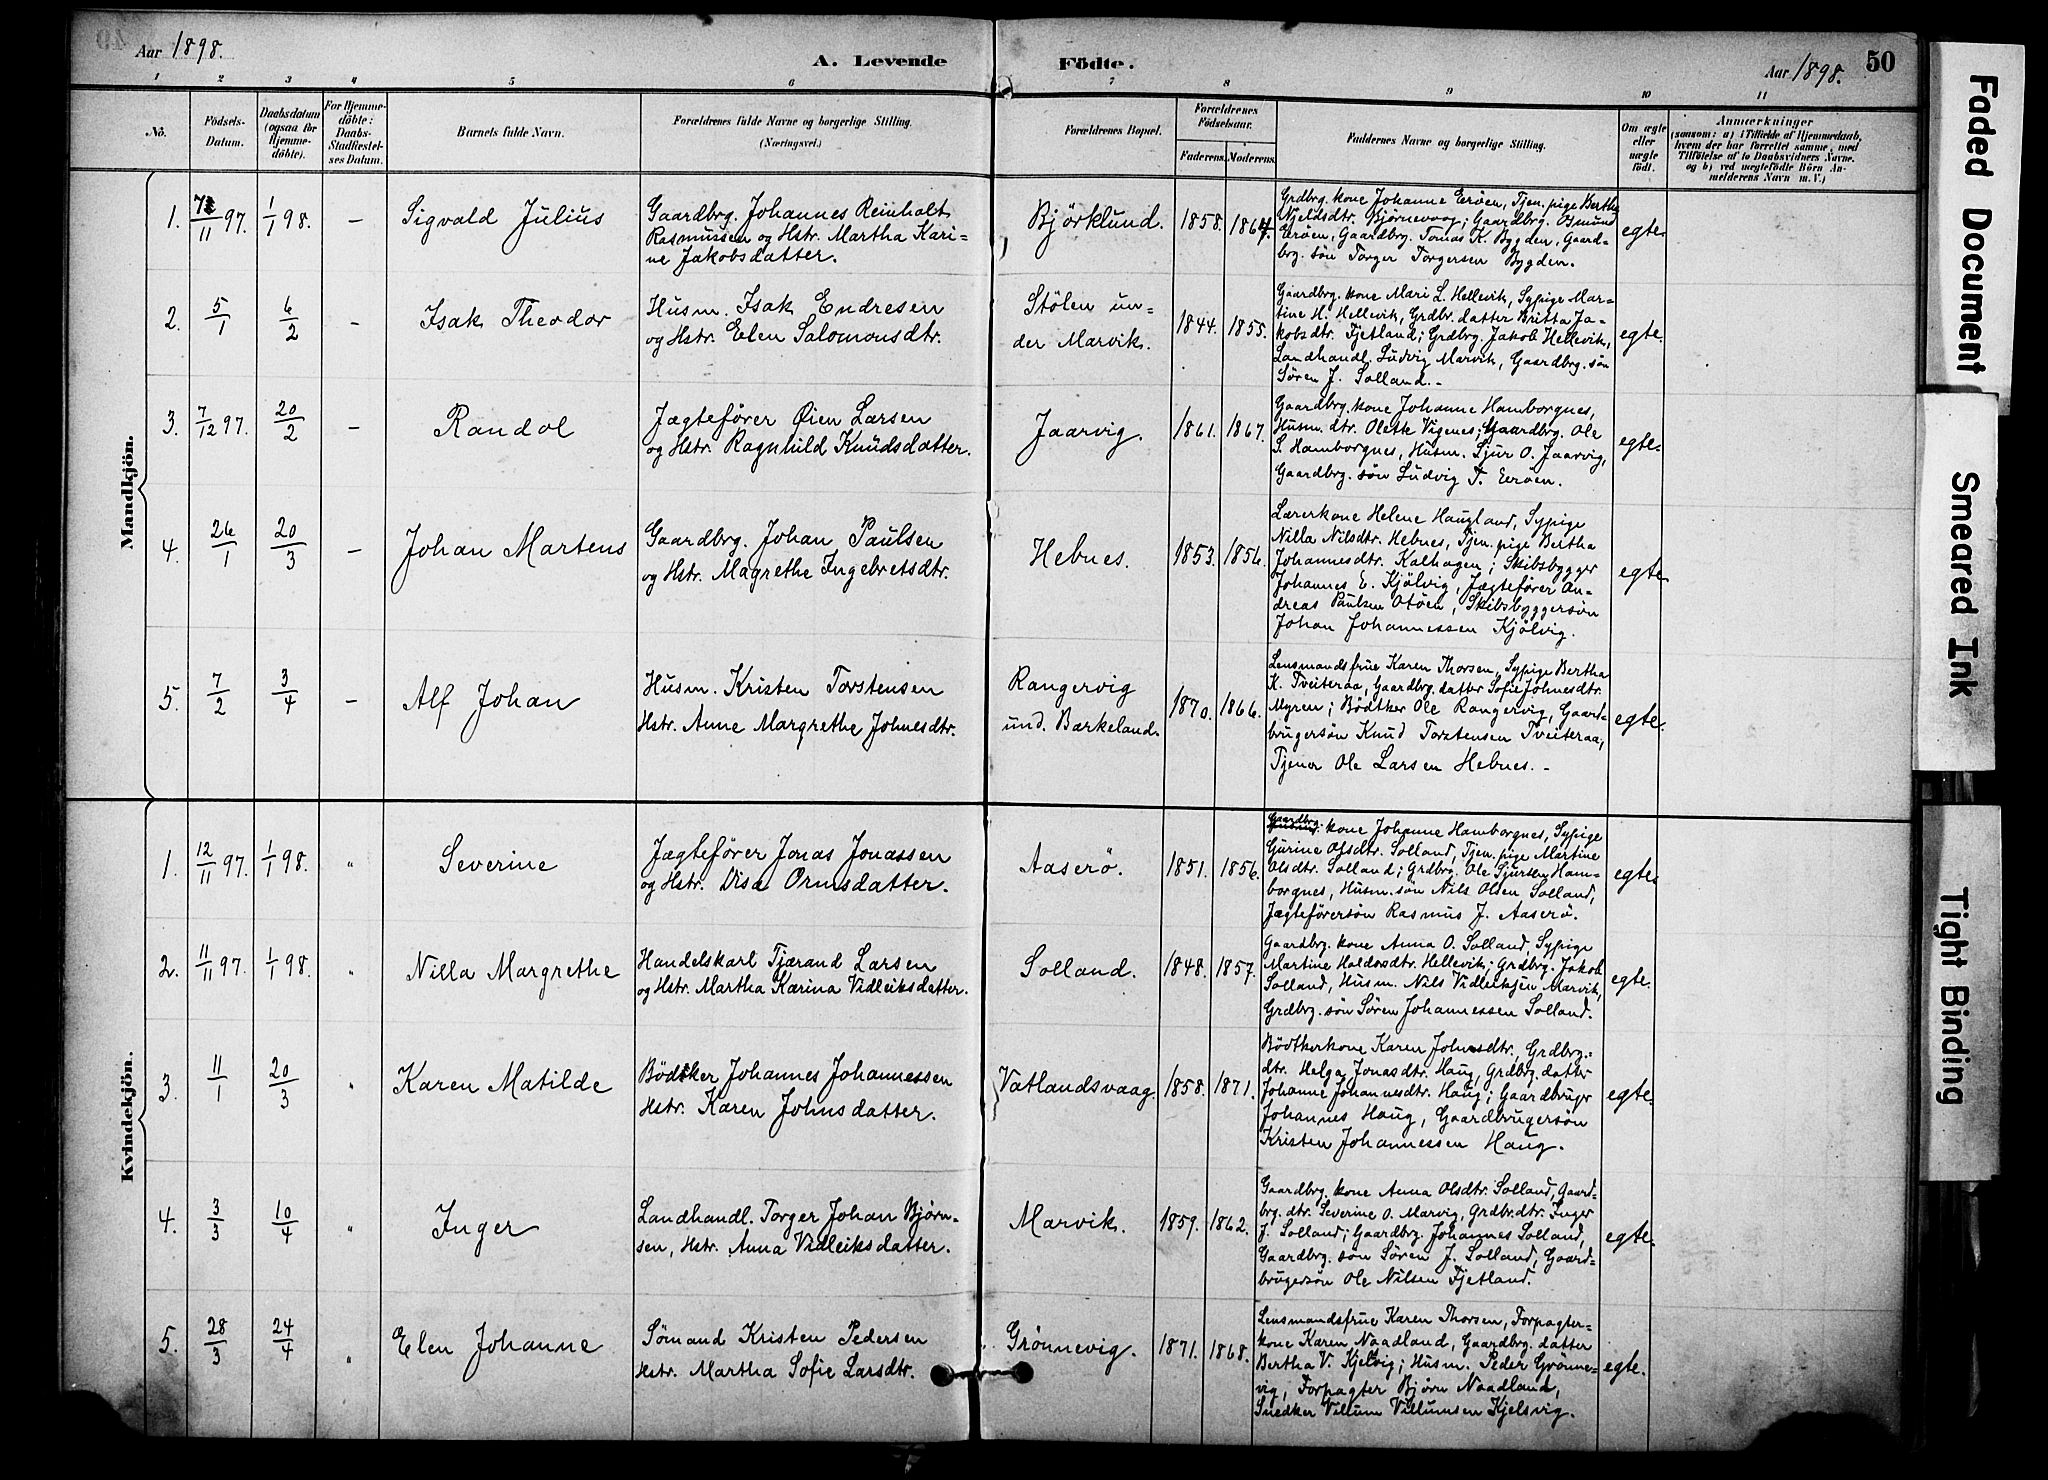 Aar 1898.
A. Levende Födte.
Aar 1898.
50
1 2 3 4 5 6 7 8 9 10 11
No.
Födsels-
Datum.
Daabsdatum
(ogsaa for
Hjemme-
döbte).
For Hjemme-
döbte:
Daabs-
Stadfæstel-
ses Datum.
Barnets fulde Navn.
Forældrenes fulde Navne og borgerlige Stilling.
(Næringsvei.)
Forældrenes Bopæl.
Forældrenes
Födselsaar.
Faderens. Moderens.
Faddernes Navne og borgerlige Stilling.
Om ægte
eller
uægte
födt.
Anmærkninger
(saasom: a) i Tilfælde af Hjemmedaab,
hvem der har forrettet samme, med
Tilföielse af to Daabsvidners Navne.
og b) ved uægtefödte Börn An-
melderens Navn m. V.)
Mandkjön.
1.
7/11 97.
1/1 98.
–
Sigvald Julius
Gaardbrg. Johannes Reinholt
Rasmussen og Hstr. Martha Kari-
ne Jakobsdatter.
Bjørklund.
1858.
1864.
Grdbrg. kone Johanne Eerøen, Tjen. pige Bertha
Njeldsdtr. Bjørnevaag; Gaardbrg. Osmund
Eerøen, Gaardbrg. Tomas K. Bygden, Gaard-
brg. søn Torger Torgersen Bygden.
egte.
2.
5/1
6/2
–
Isak Theodor
Husm. Isak Endresen
og Hstr. Elen Salomonsdtr.
Stölen un-
der Marvik.
1844.
1855.
Gaardbrg. kone Mari L. Hellevik, Sypige Mar-
tine H. Hellevik, Grdbr. datter Britta Ja-
kobsdtr. Fjetland; Grdbrg. Jakob Hellevik,
Landhandl. Ludvig Marvik, Gaardbrg. søn
Søren J. Solland. –
egte.
3.
7/12 97.
20/2
–
Randol
Jægtefører Øien Larsen
og Hstr. Ragnhild Knudsdatter.
Jaarvig.
1861.
1867.
Gaardbrg. kone Johanne Hamborgnes,
Husm. dtr. Olette Vigenes; Gaardbrg. Ole
S. Hamborgnes, Husm. Sjur O. Jaarvig,
Gaardbrg. søn Ludvig T. Eerøen.
egte.
4.
26/1
20/3
–
Johan Martens
Gaardbrg. Johan Paulsen
og Hstr. Magrethe Ingebretsdtr.
Hebnes.
1853.
1856.
Lærerkone Helene Haugland, Sypige
Nilla Nilsdtr. Hebnes, Tjen. pige Bertha
Johannesdtr. Kalhagen; Skibsbygger
Johannes E. Kjölvig, Jægtefører An-
dreas Paulsen Otøen, Skibsbyggersøn
Johan Johannessen Kjölvig.
egte
5.
7/2
3/4
–
Alf Johan
Husm. Kristen Torstensen
Hstr. Anne Margrethe Johnesdtr.
Rangervig
und. Barkeland.
1870.
1866.
Lensmandsfrue Karen Thorsen, Sypige Bertha
K. Tveiteraa, Gaardbrg. datter Sofie Johnesdtr.
Myren; Bødtker Ole Rangervig, Gaard-
brugersøn Knud Torstensen Tveiteraa,
Tjener Ole Larsen Hebnes. –
egte.
Kvindekjön.
1.
12/11 97.
1/1 98.
"
Severine
Jægtefører Jonas Jonassen
og Hstr. Disa Ormsdatter.
Aaserø.
1851.
1856.
Gaardbrg. kone Johanne Hamborgnes, Sypige
Gurine Olsdtr. Solland, Tjen. pige Martine
Olsdtr. Solland; Grdbrg. Ole Sjursen Ham-
borgnes, Husm. søn Nils Olsen Solland,
Jægteførersøn Rasmus J. Aaserø.
egte.
2.
11/11 97.
1/1 98.
"
Nilla Margrethe
Handelskarl Tjærand Larsen
og Hstr. Martha Karina Vidleiksdatter.
Solland.
1848.
1857.
Gaardbrg. kone Anna O. Solland Sypige
Martine Haldosdtr. Hellevik; Grdbrg. Jakob
Solland, Husm. Nils Vidleiksen Marvik,
Grdbrg. søn Søren Johannessen Solland.
egte.
3.
11/1
20/3
"
Karen Matilde
Bødtker Johannes Johannessen
Hstr. Karen Johnsdatter.
Vatlandsvaag
1858.
1871.
Bødtkerkone Karen Johnsdtr., Grdbrg.-
dtr. Helga Jonasdtr. Haug, Grdbrg. datter
Johanne Johannesdtr. Haug; Gaardbruger
Johannes Haug, Gaardbrugersøn
Kristen Johannessen Haug.
egte.
4.
3/3
10/4
"
Inger
Landhandl. Torger Johan Bjørn-
sen, Hstr. Anna Vidleiksdatter.
Marvik.
1859.
1862.
Gaardbrg. kone Anna Olsdtr. Solland, Gaard-
brg. dtr. Severine O. Marvig, Grdbr. dtr. Inger
J. Solland; Gaardbrg. Johannes Solland,
Gaardbrg. søn Søren J. Solland, Gaard-
brugersøn Ole Nilsen Fjetland.
egte.
5.
28/3
24/4
"
Elen Johanne
Sömand Kristen Pedersen
Hstr. Martha Sofie Larsdtr.
Grønnevig.
1871.
1868.
Lensmandsfrue Karen Thorsen, Forpagter-
kone Karen Naadland, Gaardbrg. datter
Bertha V. Kjelsvig; Husm. Peder Grønne-
vig, Forpagter Bjørn Naadland,
Snedker Villum Villumsen Kjelsvig.
egte.
Faded Document
Smeared Ink
Tight Binding